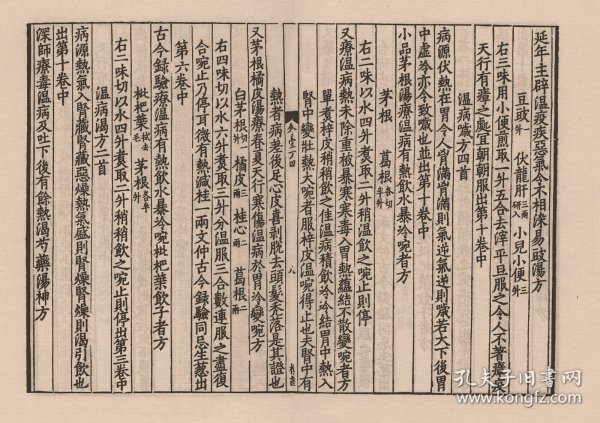 延年主辟溫疫疾惡氣令不相染易豉湯方
豆豉一升 伏龍肝三兩研入 小兒小便三升
右三味用小便煎取一升五合去滓平旦服之令人不著瘴疫
天行有瘴之處宜朝朝服出第十卷中
溫病噦方四首
病源伏熱在胃令人胷滿胷滿則氣逆氣逆則噦若大下後胃
中虛冷亦令致噦也並出第十卷中
小品茅根湯療溫病有熱飲水暴冷啘者方
茅根 葛根各切半升
右二味以水四升煮取二升稍稍溫飲之啘止則停
又療溫病熱未除重被暴寒寒毒入胃熱蘊結不散變啘者方
單煮梓皮稍稍飲之佳溫病積飲冷冷結胃中熱入
腎中變壯熱大啘者服梓皮溫啘得止也夫腎中有
熱者病差後足心皮喜剥脫去頭髮秃落是其證也
又茅根橘皮湯療春夏天行寒傷溫病於胃冷變啘方
白茅根切一升 橘皮三兩 桂心二兩 葛根二兩
右四味切以水六升煮取三升分溫服三合數連服之盡復
合啘止乃停耳微有熱減桂一兩文仲古今錄驗同忌生葱出
第六卷中
古今錄驗療溫病有熱飲水暴冷啘枇杷葉飲子者方
枇杷葉拭去毛 茅根各半升
右二味切以水四升煮取二升稍稍飲之啘止則停出第三卷中
溫病渴方二首
病源熱氣入腎臟腎臟惡燥熱氣盛則腎燥腎燥則渴引飲也
出第十卷中
深師療毒溫病及吐下後有餘熱渴芍藥湯神方
孔夫子旧书网
www.kongfz.com